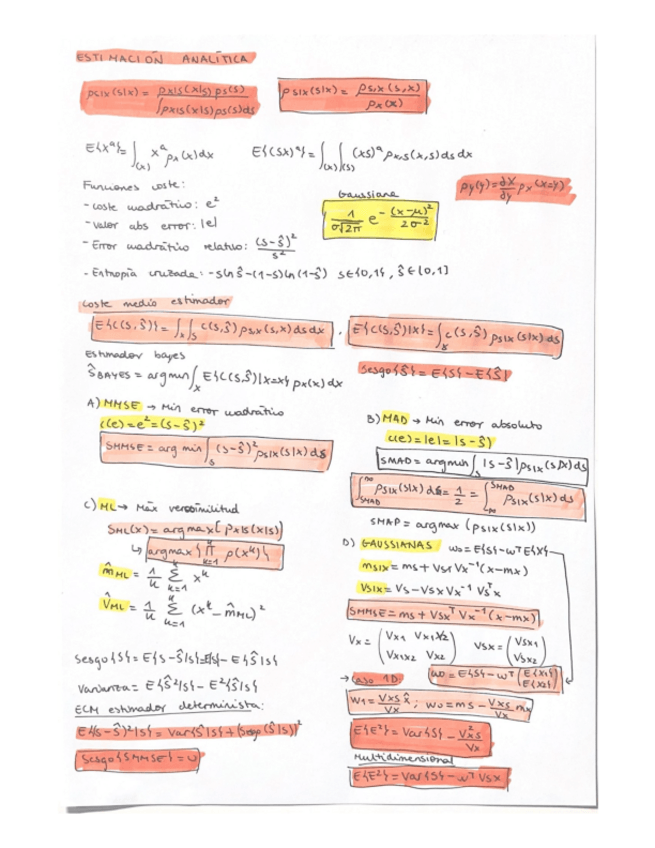 ESTIMACIÓN ANALÍTICA
pS|X(s|x) = pX|S(x|s) pS(s) / ∫pX|S(x|s)pS(s)ds
pS|X(s|x) = pS,X(s,x) / pX(x)
E{Xᵃ} = ∫(x) xᵃ pX(x)dx
E{(SX)ᵃ} = ∫(x)∫(s) (xs)ᵃ pX,S(x,s)dsdx
Funciones coste:
- coste cuadrático: e²
- valor abs error: |e|
- Error cuadrático relativo: (s-ŝ)² / s²
- Entropía cruzada: -s ln ŝ - (1-s) ln (1-ŝ) s∈{0,1}, ŝ∈[0,1]
Gaussiana
1/(σ√2π) e^-(x-μ)²/2σ²
pY(y) = ∂X/∂y pX(x=y)
coste medio estimador
E{C(S,Ŝ)} = ∫x∫s c(s,ŝ) pS,X(s,x)dsdx , E{C(S,Ŝ)|X} = ∫s c(s,ŝ) pS|X(s|x)ds
Estimador bayes
ŜBAYES = argmin ∫x E{C(S,Ŝ)|X=x} pX(x)dx
Sesgo{Ŝ} = E{S} - E{Ŝ}
A) MMSE → Min error cuadrático
c(e) = e² = (s-ŝ)²
SMMSE = arg min ∫s (s-ŝ)² pS|X(s|x)ds
B) MAD → Min error absoluto
c(e) = |e| = |s-ŝ|
SMAD = argmin ∫s |s-ŝ| pS|X(s|x)ds
∫SMAD^∞ pS|X(s|x)ds = 1/2 = ∫-∞^SMAD pS|X(s|x)ds
SMAP = argmax (pS|X(s|x))
C) ML → Máx verosimilitud
SML(x) = argmax{pX|S(x|s)}
↳ argmax{∏k=1 p(xᵏ)}
m̂ML = 1/K Σk=1^K xᵏ
V̂ML = 1/K Σk=1^K (xᵏ - m̂ML)²
D) GAUSSIANAS w0 = E{S} - wᵀE{X}
mS|X = mS + VSX VX⁻¹ (x-mX)
VS|X = VS - VSX VX⁻¹ VSXᵀ
SMMSE = mS + VSXᵀ VX⁻¹ (x-mX)
VX = (VX1 VX1X2 / VX1X2 VX2) VSX = (VSX1 / VSX2)
w0 = E{S} - wᵀ (E{X1} / E{X2})
→ caso 1D
w1 = VXS / VX ; w0 = mS - VXS/VX mX
E{E²} = Var{S} - V²XS / VX
Multidimensional
E{E²} = Var{S} - wᵀ VSX
Sesgo{S} = E{S-Ŝ|S} = E{S} - E{Ŝ|S}
Varianza = E{Ŝ²|S} - E²{Ŝ|S}
ECM estimador determinista:
E{(S-Ŝ)²|S} = Var{Ŝ|S} + (Sesgo(Ŝ|S))²
Sesgo{SMMSE} = 0